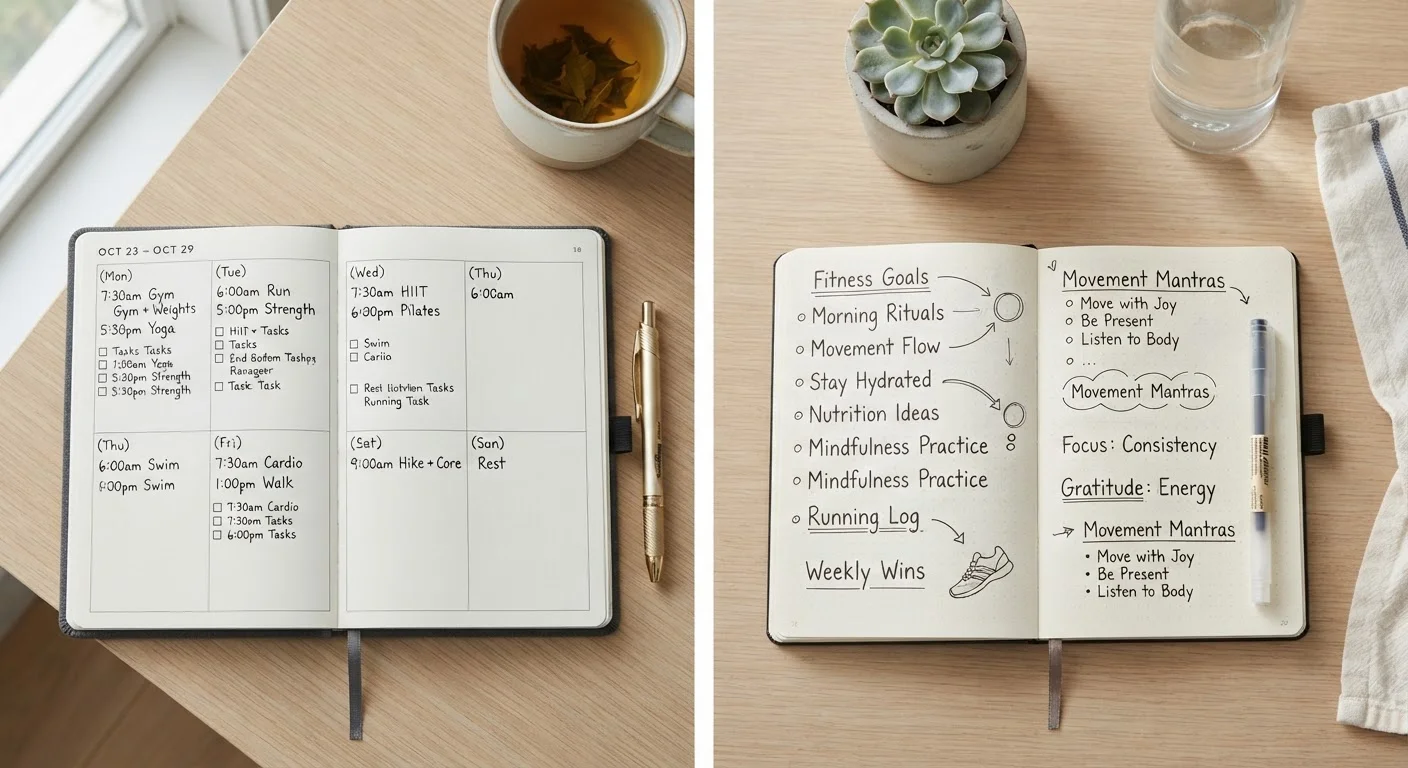 OCT 23 – OCT 29
18
(Mon)
7:30am Gym
Gym + Weights
5:30pm Yoga
Tasks Tasks
5:30pm Strength
5:30pm Strength
(Tue)
6:00am Run
5:00pm Strength
Tasks
Task Task
(Wed)
7:30am HIIT
6:00pm Pilates
Swim
Rest Tasks
Running Task
(Thu)
6:00am
(Thu)
6:00am Swim
6:00pm Swim
(Fri)
7:30am Cardio
1:00pm Walk
7:30am Cardio
7:30pm Tasks
6:00pm Tasks
(Sat)
9:00am Hike + Core
(Sun)
Rest
Fitness Goals
Morning Rituals
Movement Flow
Stay Hydrated
Nutrition Ideas
Mindfulness Practice
Mindfulness Practice
Running Log
Weekly Wins
Movement Mantras
Move with Joy
Be Present
Listen to Body
...
Movement Mantras
Focus: Consistency
Gratitude: Energy
Movement Mantras
Move with Joy
Be Present
Listen to Body